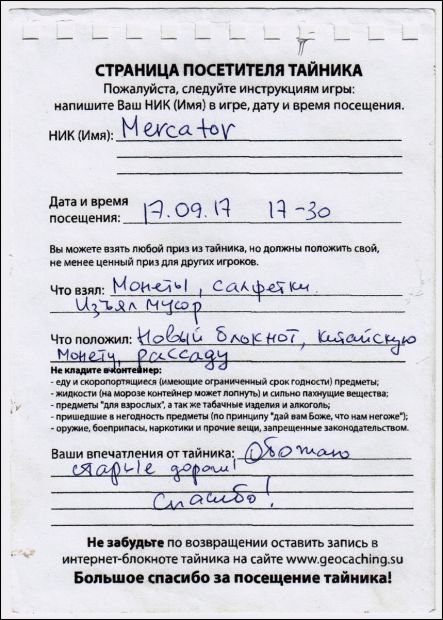 СТРАНИЦА ПОСЕТИТЕЛЯ ТАЙНИКА
Пожалуйста, следуйте инструкциям игры:
напишите Ваш НИК (Имя) в игре, дату и время посещения.
НИК (Имя): Mercator
Дата и время
посещения: 17.09.17 17-30
Вы можете взять любой приз из тайника, но должны положить свой,
не менее ценный приз для других игроков.
Что взял: Монеты, салфетки.
Изъял мусор
Что положил: Новый блокнот, китайскую
монету, рассаду
Не кладите в контейнер:
- еду и скоропортящиеся (имеющие ограниченный срок годности) предметы;
- жидкости (на морозе контейнер может лопнуть) и сильно пахнущие вещества;
- предметы "для взрослых", а так же табачные изделия и алкоголь;
- пришедшие в негодность предметы (по принципу "дай вам Боже, что нам негоже");
- оружие, боеприпасы, наркотики и прочие вещи, запрещенные законодательством.
Ваши впечатления от тайника: Обожаю
старые дороги!
Спасибо!
Не забудьте по возвращении оставить запись в
интернет-блокноте тайника на сайте www.geocaching.su
Большое спасибо за посещение тайника!